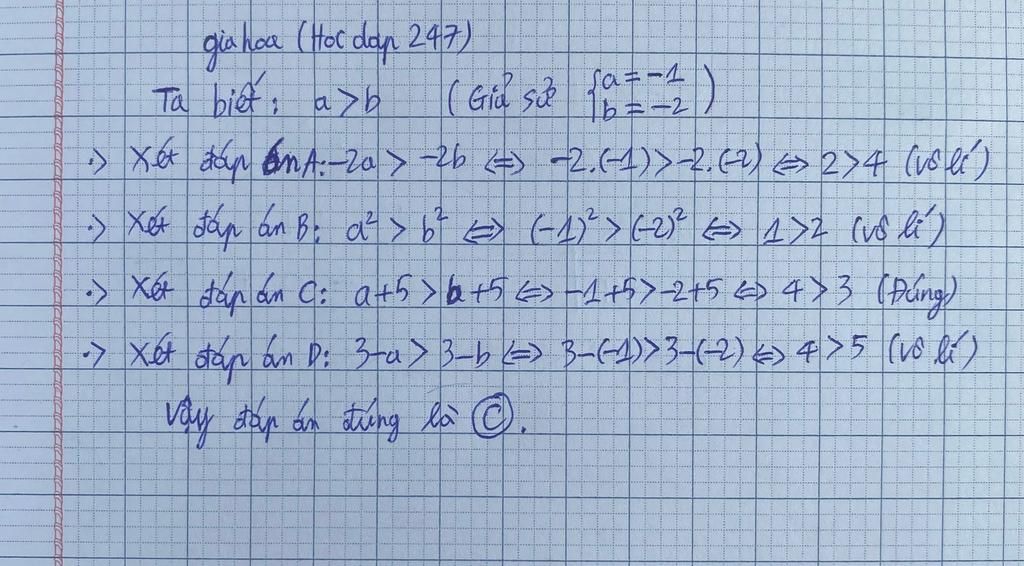 giahoa (Hoc dap 247)
Ta biết: a>b (Giả sử {a=-1 b=-2)
·> Xét đáp án A: -2a > -2b <=> -2.(-1)>-2.(-2) <=> 2>4 (vô lí)
·> Xét đáp án B: a² > b² <=> (-1)² > (-2)² <=> 1>2 (vô lí)
·> Xét đáp án C: a+5 > b+5 <=> -1+5>-2+5 <=> 4>3 (Đúng)
·> Xét đáp án D: 3-a > 3-b <=> 3-(-1)>3-(-2) <=> 4>5 (vô lí)
Vậy đáp án đúng là Ⓒ.